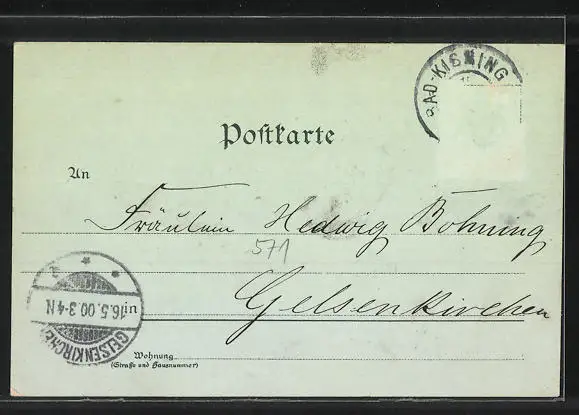 BAD-KISSING
Postkarte
An
Fräulein Hedwig Böhning
571
in Gelsenkirchen
16.5.00.3-4N
GELSENKIRCHEN
Wohnung
(Straße und Hausnummer)